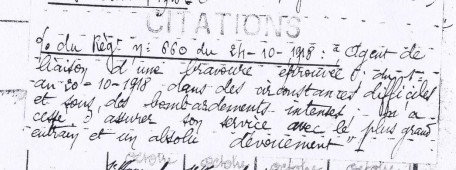 CITATIONS
O. du Régt n: 660 du 24-10-1918: "Agent de
liaison d'une bravoure éprouvée; du 1
au 20-10-1918 dans des circonstances difficiles
et sous des bombardements intenses, n'a
cessé d'assurer son service avec le plus grand
entrain et un absolu dévouement"
octobre octobre octobre octobre